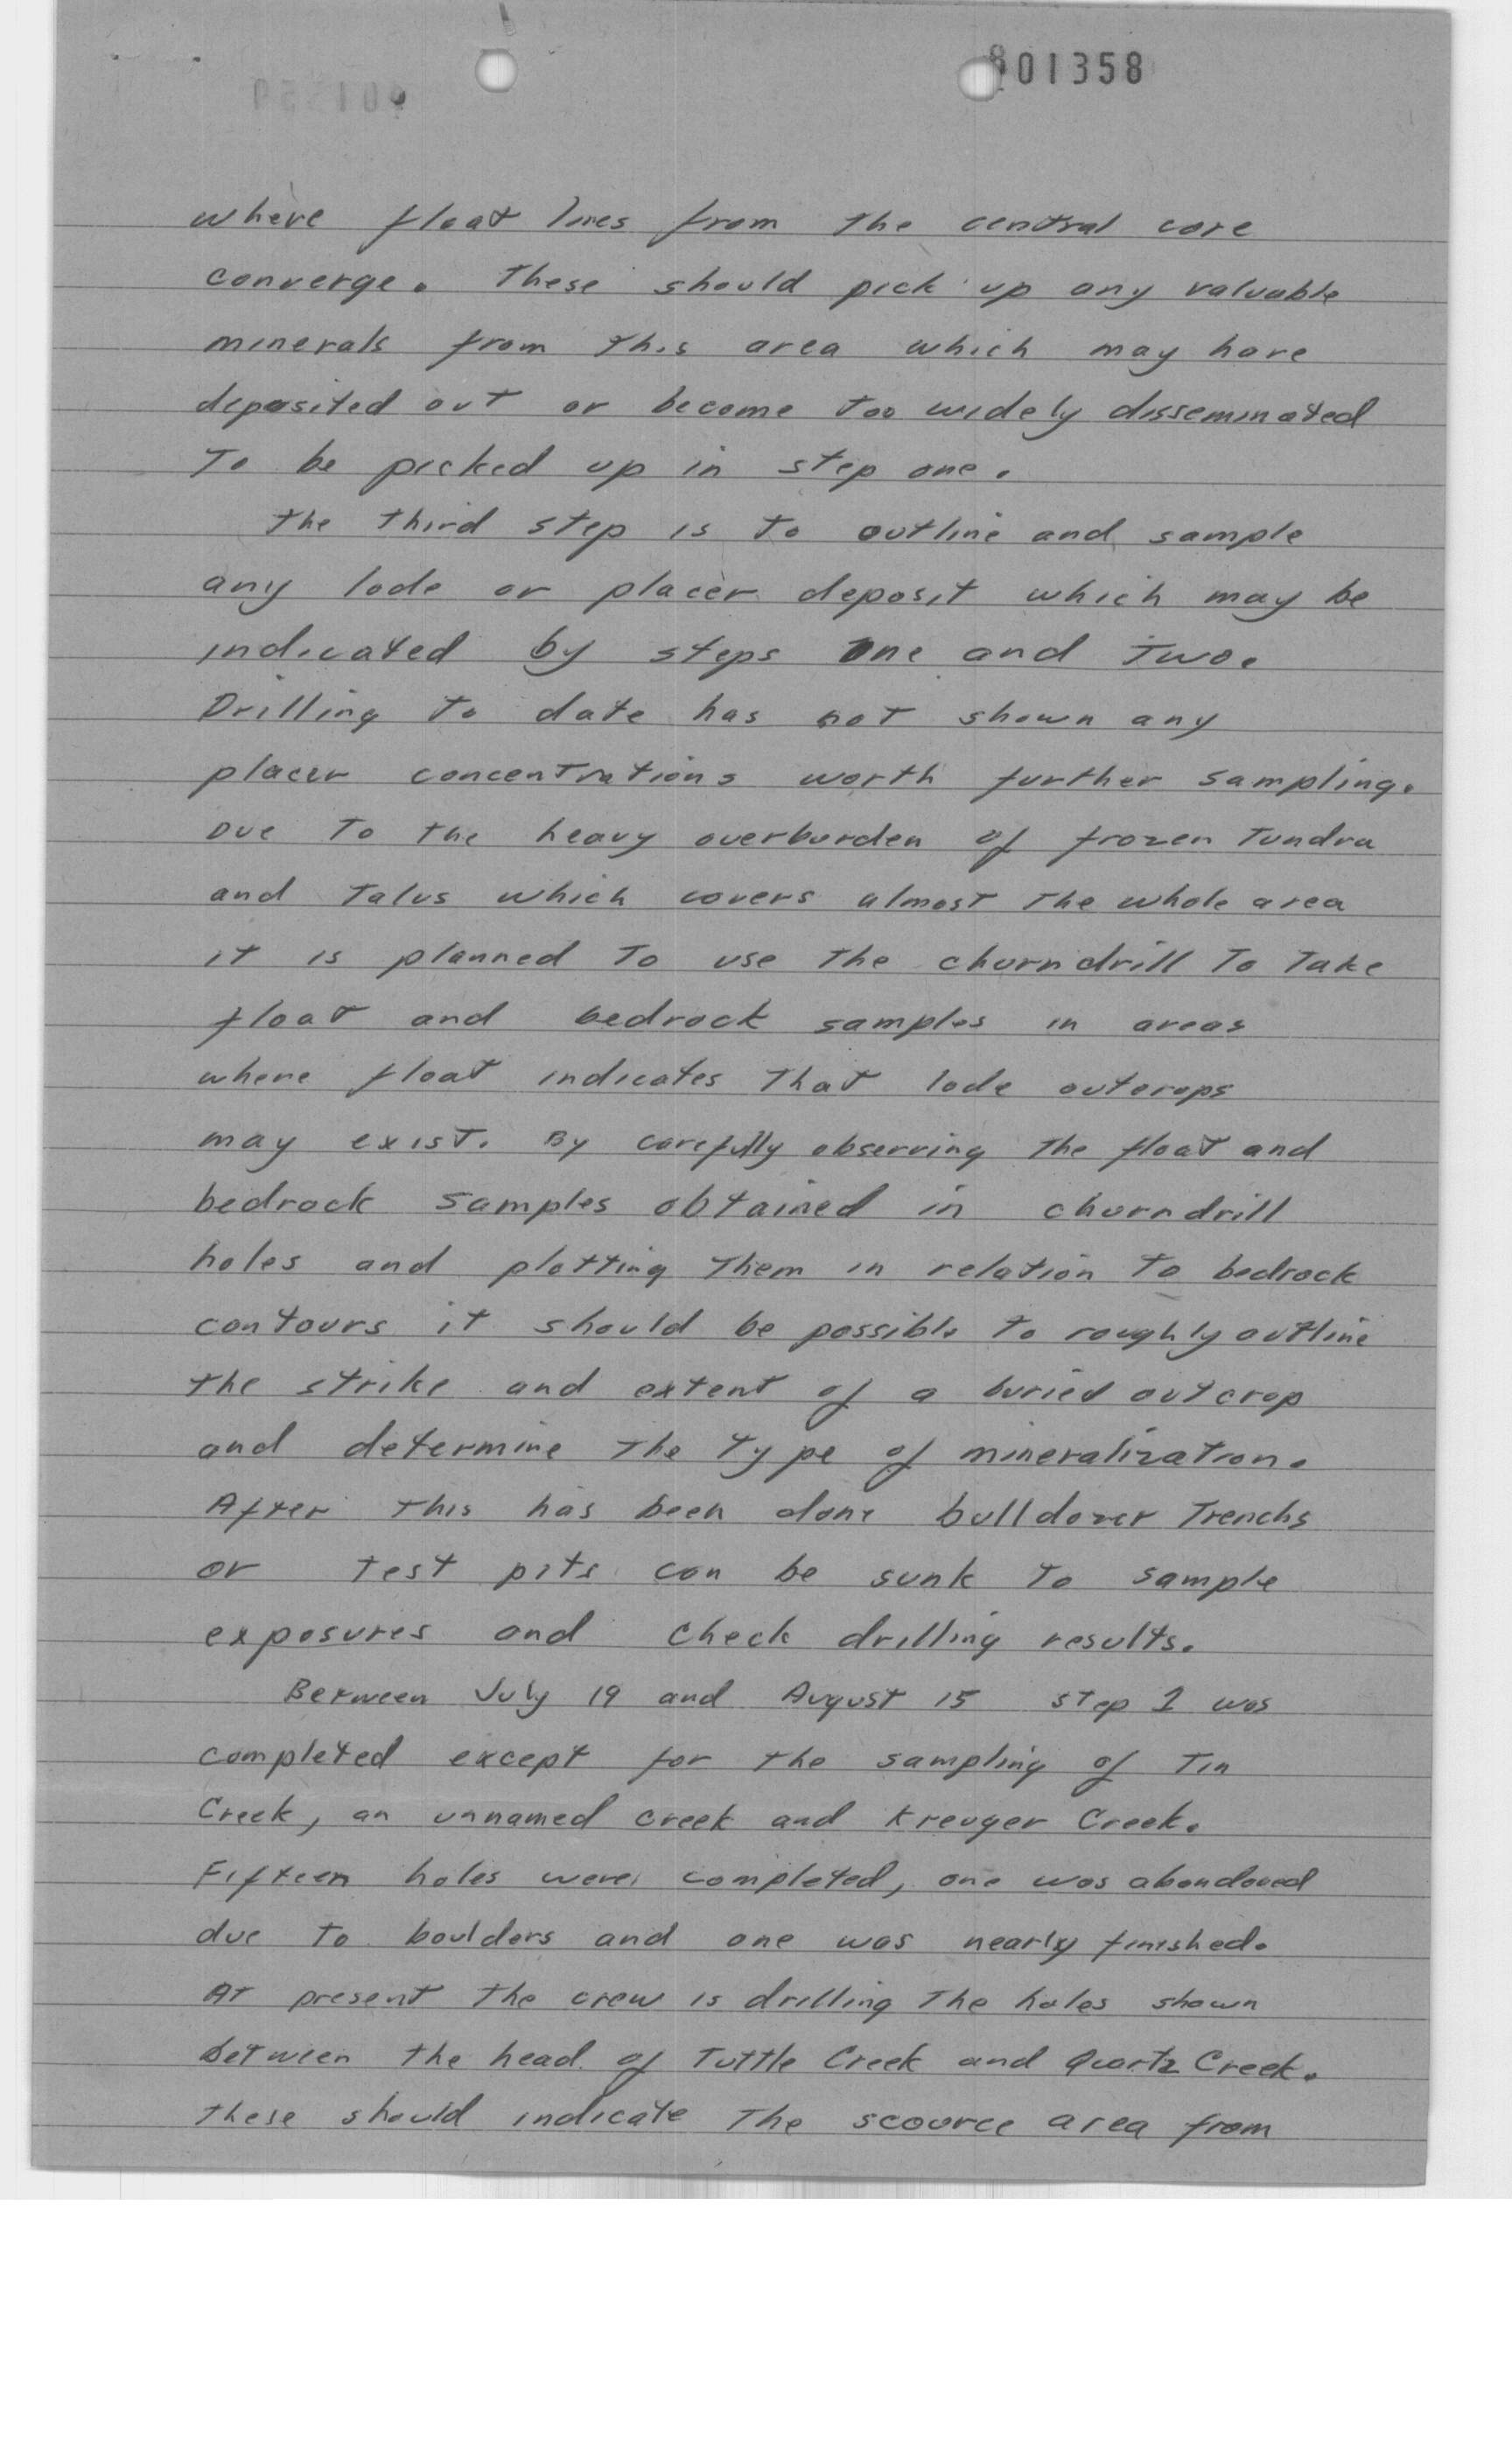 801358
where float lines from the central core
converge. These should pick up any valuable
minerals from this area which may have
deposited out or become too widely disseminated
To be picked up in step one.
The third step is to outline and sample
any lode or placer deposit which may be
indicated by steps one and two.
Drilling to date has not shown any
placer concentrations worth further sampling.
Due to the heavy overburden of frozen tundra
and talus which covers almost the whole area
it is planned to use the churndrill to take
float and bedrock samples in areas
where float indicates that lode outcrops
may exist. By carefully observing the float and
bedrock samples obtained in churndrill
holes and plotting them in relation to bedrock
contours it should be possible to roughly outline
the strike and extent of a buried outcrop
and determine the type of mineralization.
After this has been done bulldozer trenchs
or test pits can be sunk to sample
exposures and check drilling results.
Between July 19 and August 15 step 1 was
completed except for the sampling of Tin
Creek, an unnamed creek and Kreuger Creek.
Fifteen holes were completed, one was abandoned
due to boulders and one was nearly finished.
At present the crew is drilling the holes shown
between the head of Tuttle Creek and Quartz Creek.
These should indicate the scource area from